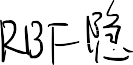 RBF隐